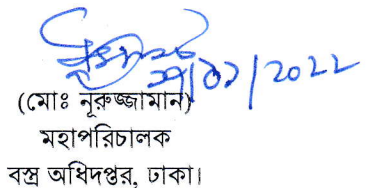 /2022
(মোঃ নূরুজ্জামান)
মহাপরিচালক
বস্ত্র অধিদপ্তর, ঢাকা।